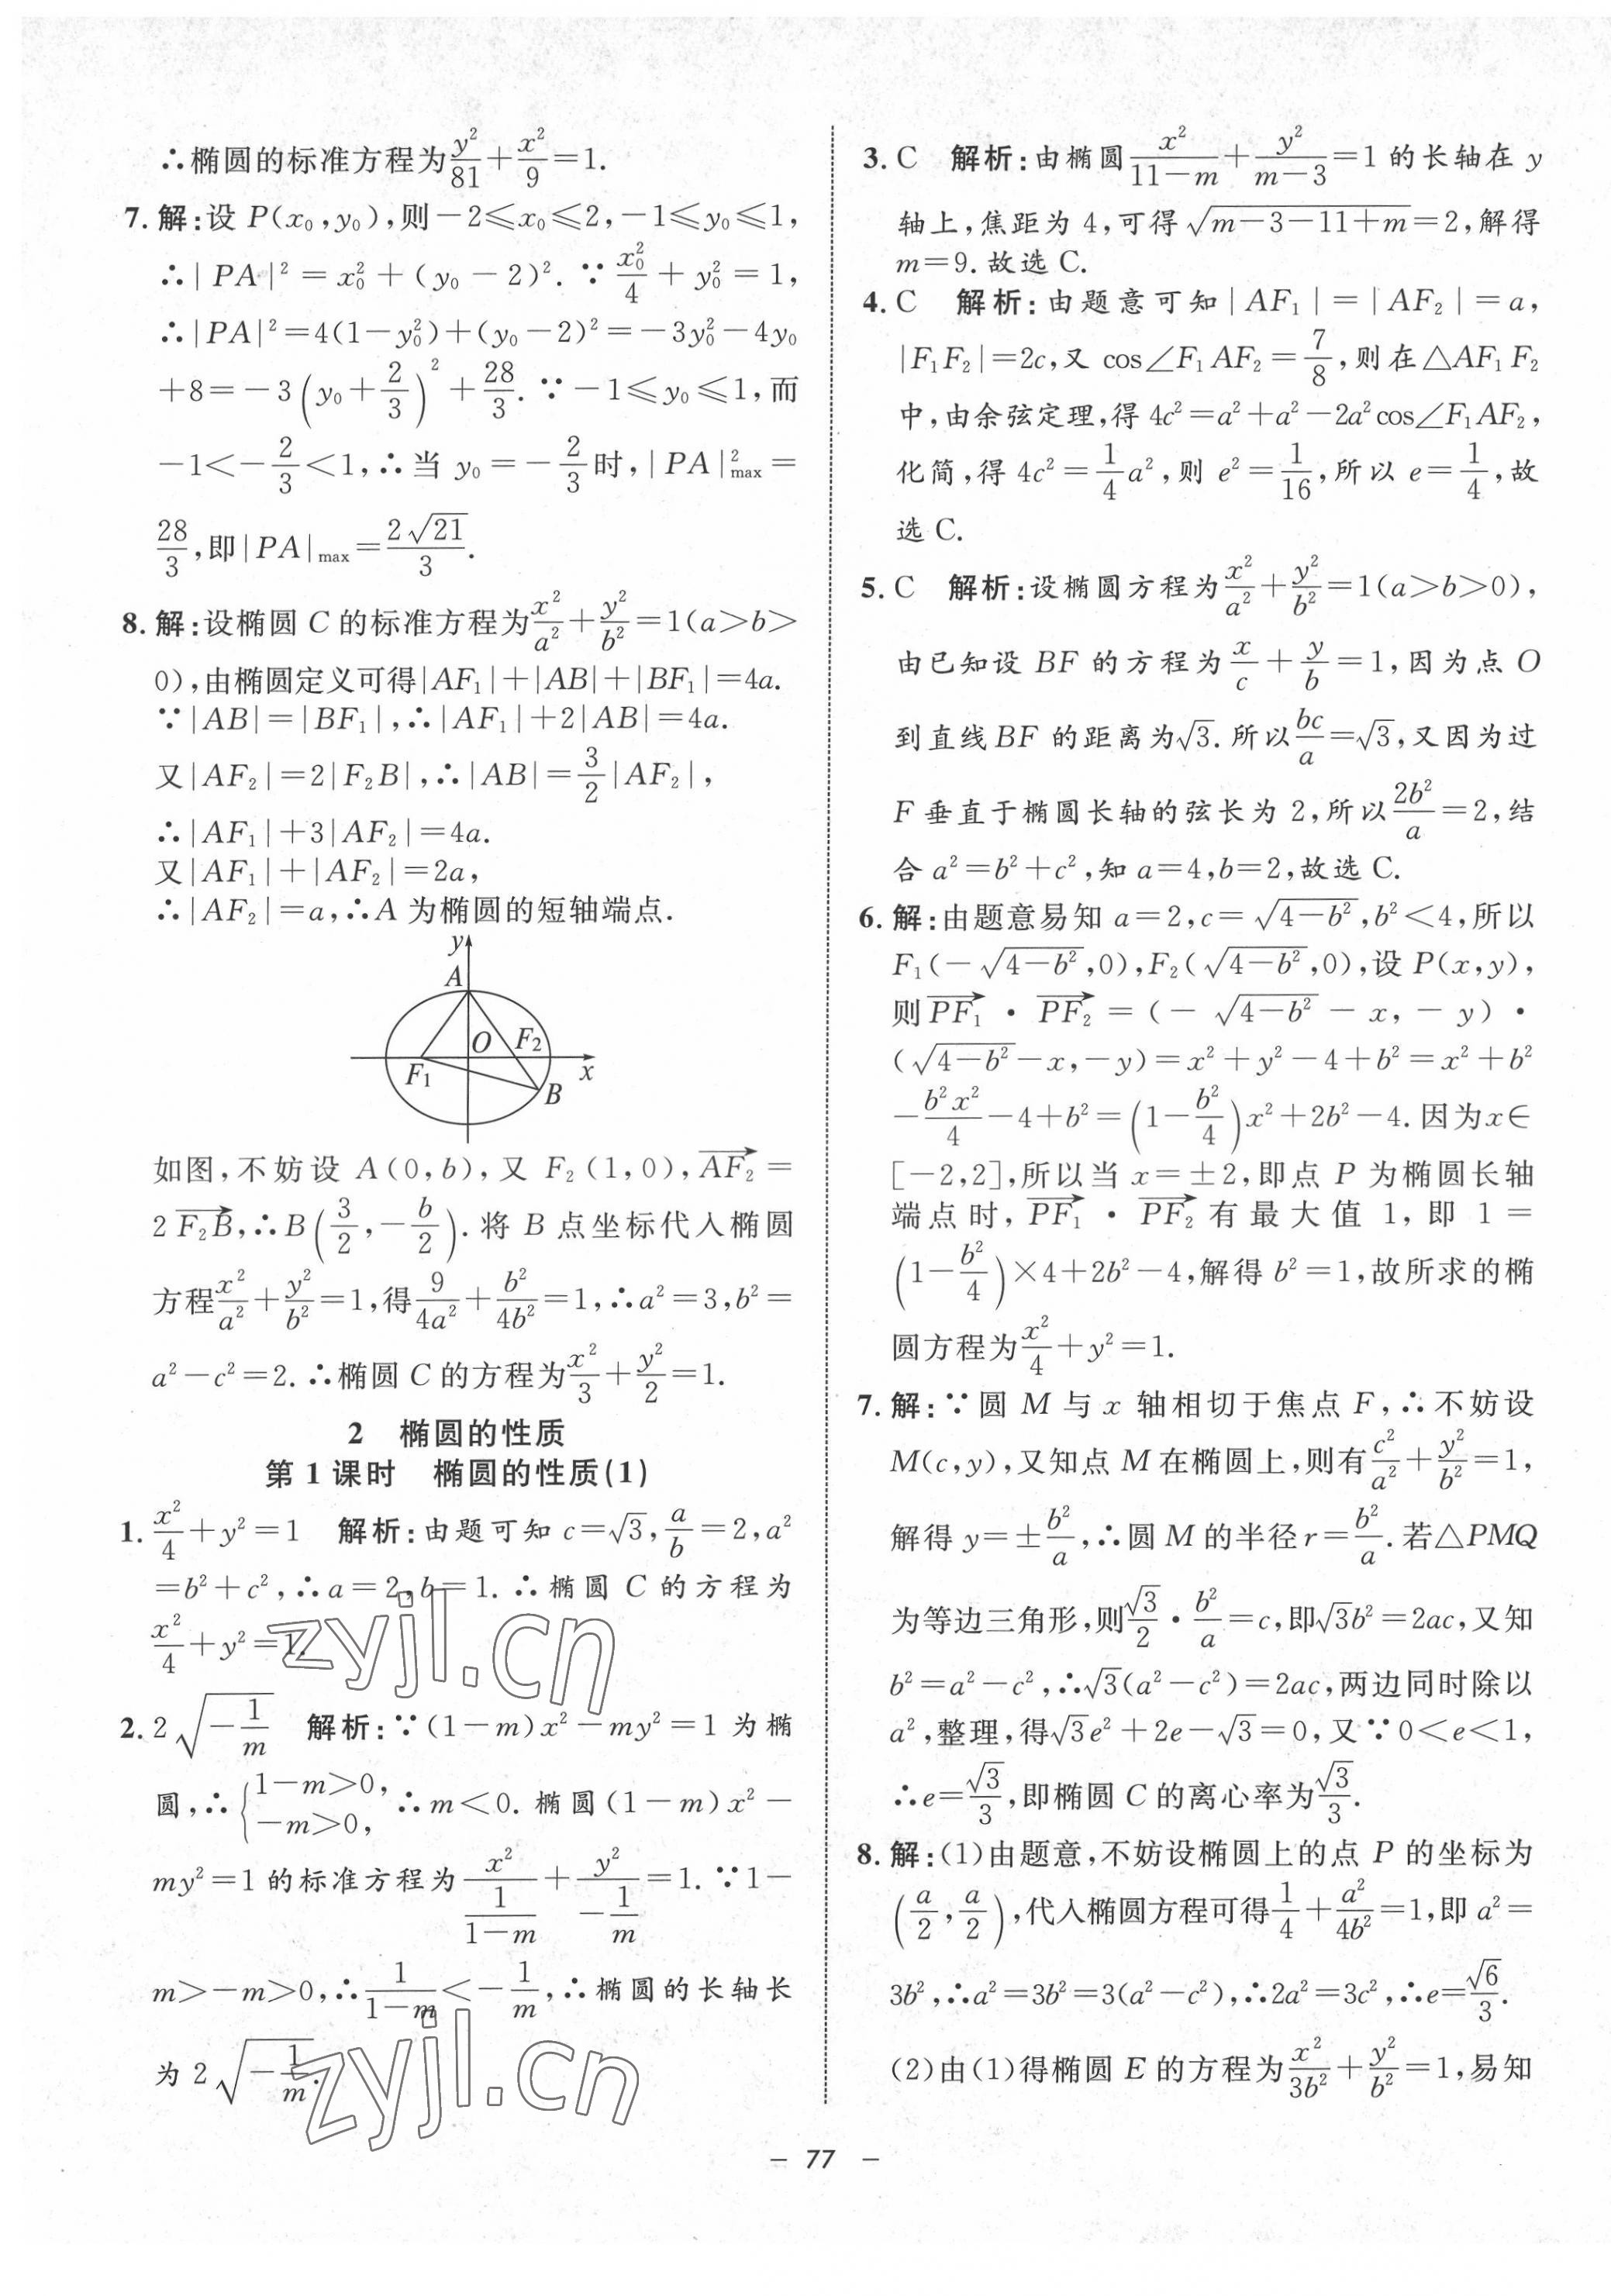 ∴椭圆的标准方程为y²/81+x²/9=1.
7.解:设 P(x₀,y₀),则−2≤x₀≤2,−1≤y₀≤1,
∴|PA|²=x₀²+(y₀−2)².∵x₀²/4+y₀²=1,
∴|PA|²=4(1−y₀²)+(y₀−2)²=−3y₀²−4y₀
+8=−3(y₀+2/3)²+28/3.∵−1≤y₀≤1,而
−1<−2/3<1,∴当 y₀=−2/3时,|PA|²max=
28/3,即|PA|max=2√21/3.
8.解:设椭圆 C 的标准方程为x²/a²+y²/b²=1(a>b>
0),由椭圆定义可得|AF₁|+|AB|+|BF₁|=4a.
∵|AB|=|BF₁|,∴|AF₁|+2|AB|=4a.
又|AF₂|=2|F₂B|,∴|AB|=3/2|AF₂|,
∴|AF₁|+3|AF₂|=4a.
又|AF₁|+|AF₂|=2a,
∴|AF₂|=a,∴A 为椭圆的短轴端点.
y
A
O F₂
F₁ x
B
如图,不妨设 A(0,b),又 F₂(1,0),AF₂→=
2F₂B→,∴B(3/2,−b/2).将 B 点坐标代入椭圆
方程x²/a²+y²/b²=1,得9/4a²+b²/4b²=1,∴a²=3,b²=
a²−c²=2.∴椭圆 C 的方程为x²/3+y²/2=1.
2 椭圆的性质
第1课时 椭圆的性质(1)
1.x²/4+y²=1 解析:由题可知 c=√3,a/b=2,a²
=b²+c²,∴a=2,b=1.∴椭圆 C 的方程为
x²/4+y²=1.
2.2√(−1/m) 解析:∵(1−m)x²−my²=1 为椭
圆,∴{1−m>0,−m>0,∴m<0.椭圆(1−m)x²−
my²=1 的标准方程为x²/(1/(1−m))+y²/(−1/m)=1.∵1−
m>−m>0,∴1/(1−m)<−1/m,∴椭圆的长轴长
为 2√(−1/m).
3.C 解析:由椭圆x²/(11−m)+y²/(m−3)=1 的长轴在 y
轴上,焦距为 4,可得√(m−3−11+m)=2,解得
m=9.故选 C.
4.C 解析:由题意可知|AF₁|=|AF₂|=a,
|F₁F₂|=2c,又 cos∠F₁AF₂=7/8,则在△AF₁F₂
中,由余弦定理,得 4c²=a²+a²−2a²cos∠F₁AF₂,
化简,得 4c²=1/4a²,则 e²=1/16,所以 e=1/4,故
选 C.
5.C 解析:设椭圆方程为x²/a²+y²/b²=1(a>b>0),
由已知设 BF 的方程为x/c+y/b=1,因为点 O
到直线BF 的距离为√3.所以bc/a=√3,又因为过
F 垂直于椭圆长轴的弦长为 2,所以2b²/a=2,结
合 a²=b²+c²,知 a=4,b=2,故选 C.
6.解:由题意易知 a=2,c=√(4−b²),b²<4,所以
F₁(−√(4−b²),0),F₂(√(4−b²),0),设 P(x,y),
则PF₁→·PF₂→=(−√(4−b²)−x,−y)·
(√(4−b²)−x,−y)=x²+y²−4+b²=x²+b²
−b²x²/4−4+b²=(1−b²/4)x²+2b²−4.因为x∈
[−2,2],所以当 x=±2,即点 P 为椭圆长轴
端点时,PF₁→·PF₂→有最大值 1,即 1=
(1−b²/4)×4+2b²−4,解得 b²=1,故所求的椭
圆方程为x²/4+y²=1.
7.解:∵圆 M 与 x 轴相切于焦点 F,∴不妨设
M(c,y),又知点 M 在椭圆上,则有c²/a²+y²/b²=1,
解得 y=±b²/a,∴圆 M 的半径 r=b²/a.若△PMQ
为等边三角形,则√3/2·b²/a=c,即√3b²=2ac,又知
b²=a²−c²,∴√3(a²−c²)=2ac,两边同时除以
a²,整理,得√3e²+2e−√3=0,又∵0<e<1,
∴e=√3/3,即椭圆 C 的离心率为√3/3.
8.解:(1)由题意,不妨设椭圆上的点 P 的坐标为
(a/2,a/2),代入椭圆方程可得1/4+a²/4b²=1,即 a²=
3b²,∴a²=3b²=3(a²−c²),∴2a²=3c²,∴e=√6/3.
(2)由(1)得椭圆 E 的方程为x²/3b²+y²/b²=1,易知
— 77 —
zyjl.cn
zyjl.cn